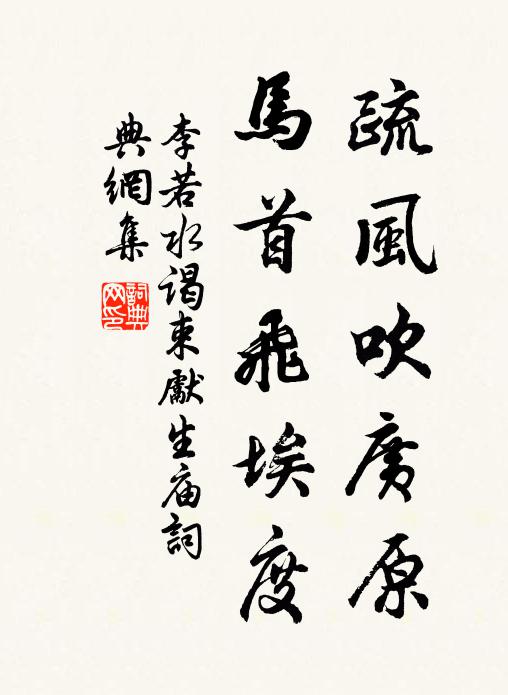 疏風吹廣原
馬首飛埃度
李若水謁東獻生庙詞
典網集
詞典网印